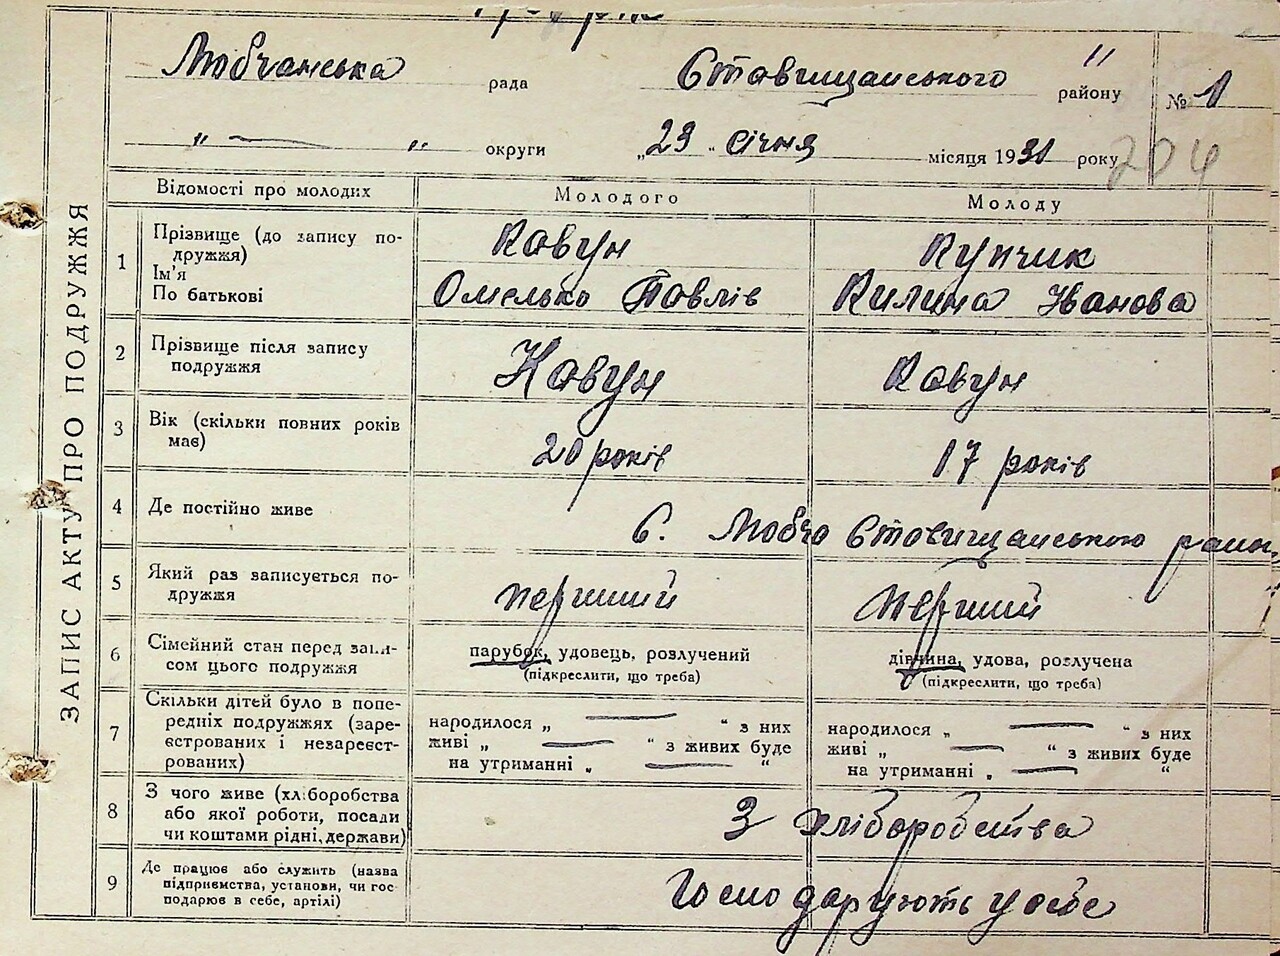 ЗАПИС АКТУ ПРО ПОДРУЖЖЯ
Любчанська рада Ставищанського району № 1
" — " округи „23 „ січня місяця 1931 року 204
Відомості про молодих Молодого Молоду
1 Прізвище (до запису по-
дружжя) Кавун Купчик
Ім'я
По батькові Омелько Павлів Килина Іванова
2 Прізвище після запису
подружжя Кавун Кавун
3 Вік (скільки повних років
має) 20 років 17 років
4 Де постійно живе С. Любча Ставищанського району
5 Який раз записується по-
дружжя перший перший
6 Сімейний стан перед запи-
сом цього подружжя
парубок, удовець, розлучений
(підкреслити, що треба)
дівчина, удова, розлучена
(підкреслити, що треба)
7 Скільки дітей було в попе-
редніх подружжях (заре-
єстрованих і незареєст-
рованих)
народилося „ — “ з них
живі „ — “ з живих буде
на утриманні „ — “
народилося „ — “ з них
живі „ — “ з живих буде
на утриманні „ — “
8 З чого живе (хліборобства
або якої роботи, посади
чи коштами рідні, держави)
З хліборобства
9 Де працює або служить (назва
підприємства, установи, чи гос-
подарює в себе, артілі)
Господарують у себе